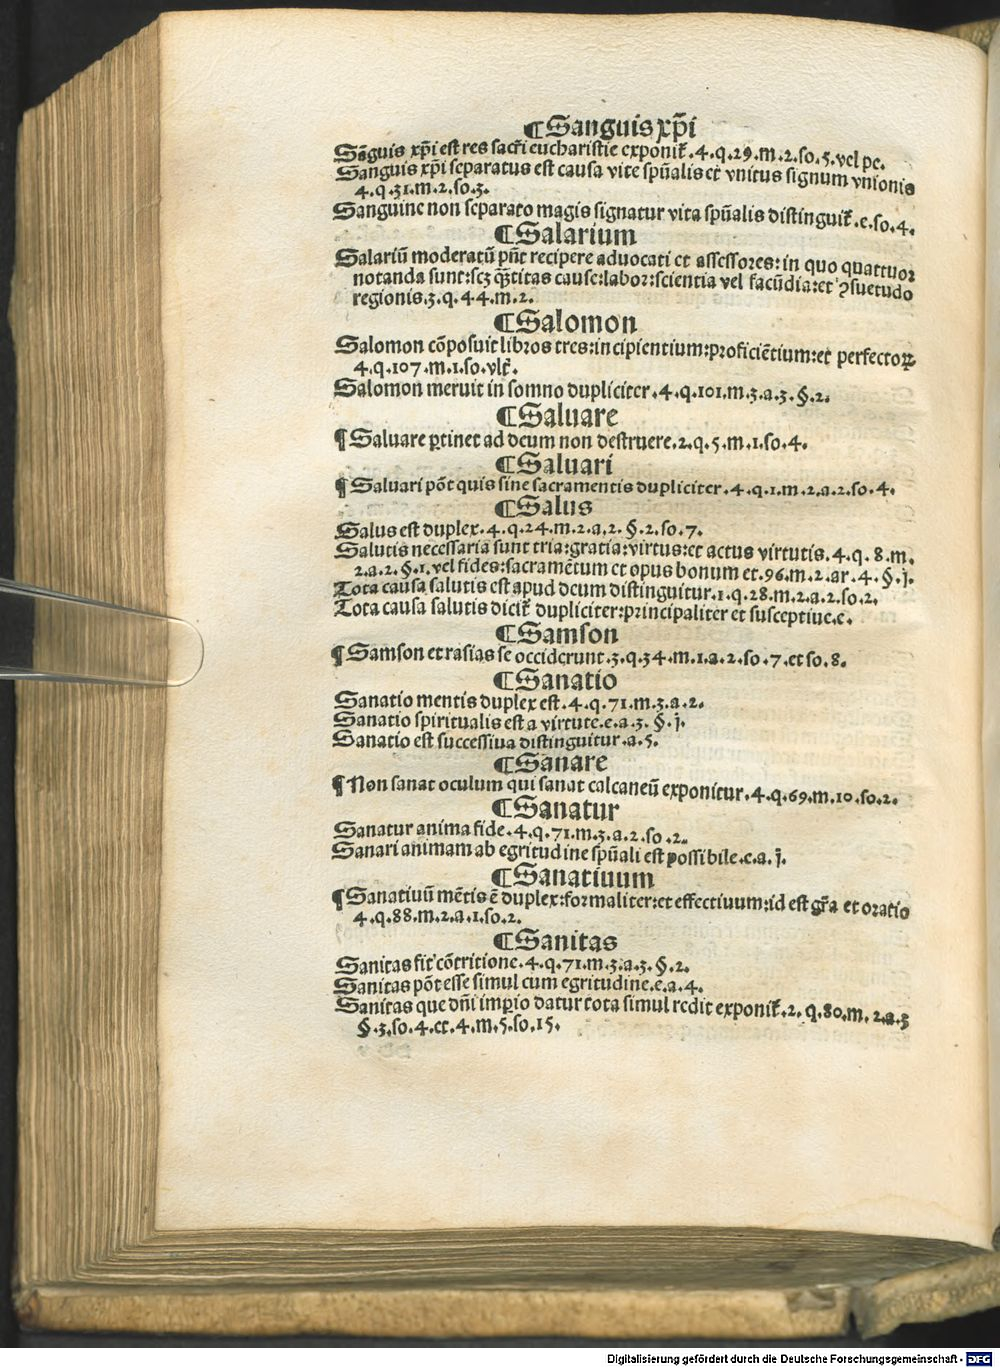 ¶Sanguis xp̄i
Sāguis xp̄i est res sacr̄i eucharistie exponit̄.4.q.29.m.2.so.5.vel pe.
Sanguis xp̄i separatus est causa vite spūalis et vnitus signum vnionis
4.q.31.m.2.so.3.
Sanguine non separato magis signatur vita spūalis distinguit̄.e.so.4.
¶Salarium
Salariū moderatū pn̄t recipere aduocati et assessores:in quo quattuor
notanda sunt:scꝫ q̄titas cause:labor:scientia vel facūdia:et ꝯsuetudo
regionis.3.q.44.m.2.
¶Salomon
Salomon cōposuit libros tres:incipientium:proficiētium:et perfectoꝝ
4.q.107.m.1.so.vlt̄.
Salomon meruit in somno dupliciter.4.q.101.m.3.a.3.§.2.
¶Saluare
¶Saluare ꝑtinet ad deum non destruere.2.q.5.m.1.so.4.
¶Saluari
¶Saluari pōt quis sine sacramentis dupliciter.4.q.1.m.2.a.2.so.4.
¶Salus
Salus est duplex.4.q.24.m.2.a.2.§.2.so.7.
Salutis necessaria sunt tria:gratia:virtus:et actus virtutis.4.q.8.m.
2.a.2.§.1.vel fides:sacramētum et opus bonum et.96.m.2.ar.4.§.j.
Tota causa salutis est apud deum distinguitur.1.q.28.m.2.a.2.so.2.
Tota causa salutis dicit̄ dupliciter:principaliter et susceptiue.e.
¶Samson
¶Samson et rasias se occiderunt.3.q.34.m.1.a.2.so.7.et so.8.
¶Sanatio
Sanatio mentis duplex est.4.q.71.m.3.a.2.
Sanatio spiritualis est a virtute.e.a.3.§.j.
Sanatio est successiua distinguitur.a.5.
¶Sanare
¶Non sanat oculum qui sanat calcaneū exponitur.4.q.69.m.10.so.2.
¶Sanatur
Sanatur anima fide.4.q.71.m.3.a.2.so.2.
Sanari animam ab egritudine spūali est possibile.e.a.j.
¶Sanatiuum
¶Sanatiuū mētis ē duplex:formaliter:et effectiuum:id est gr̄a et oratio
4.q.88.m.2.a.1.so.2.
¶Sanitas
Sanitas fit cōtritione.4.q.71.m.3.a.3.§.2.
Sanitas pōt esse simul cum egritudine.e.a.4.
Sanitas que dn̄i imꝑio datur tota simul redit exponit̄.2.q.80.m.2.a.3
§.3.so.4.et.4.m.5.so.15.
Digitalisierung gefördert durch die Deutsche Forschungsgemeinschaft - DFG